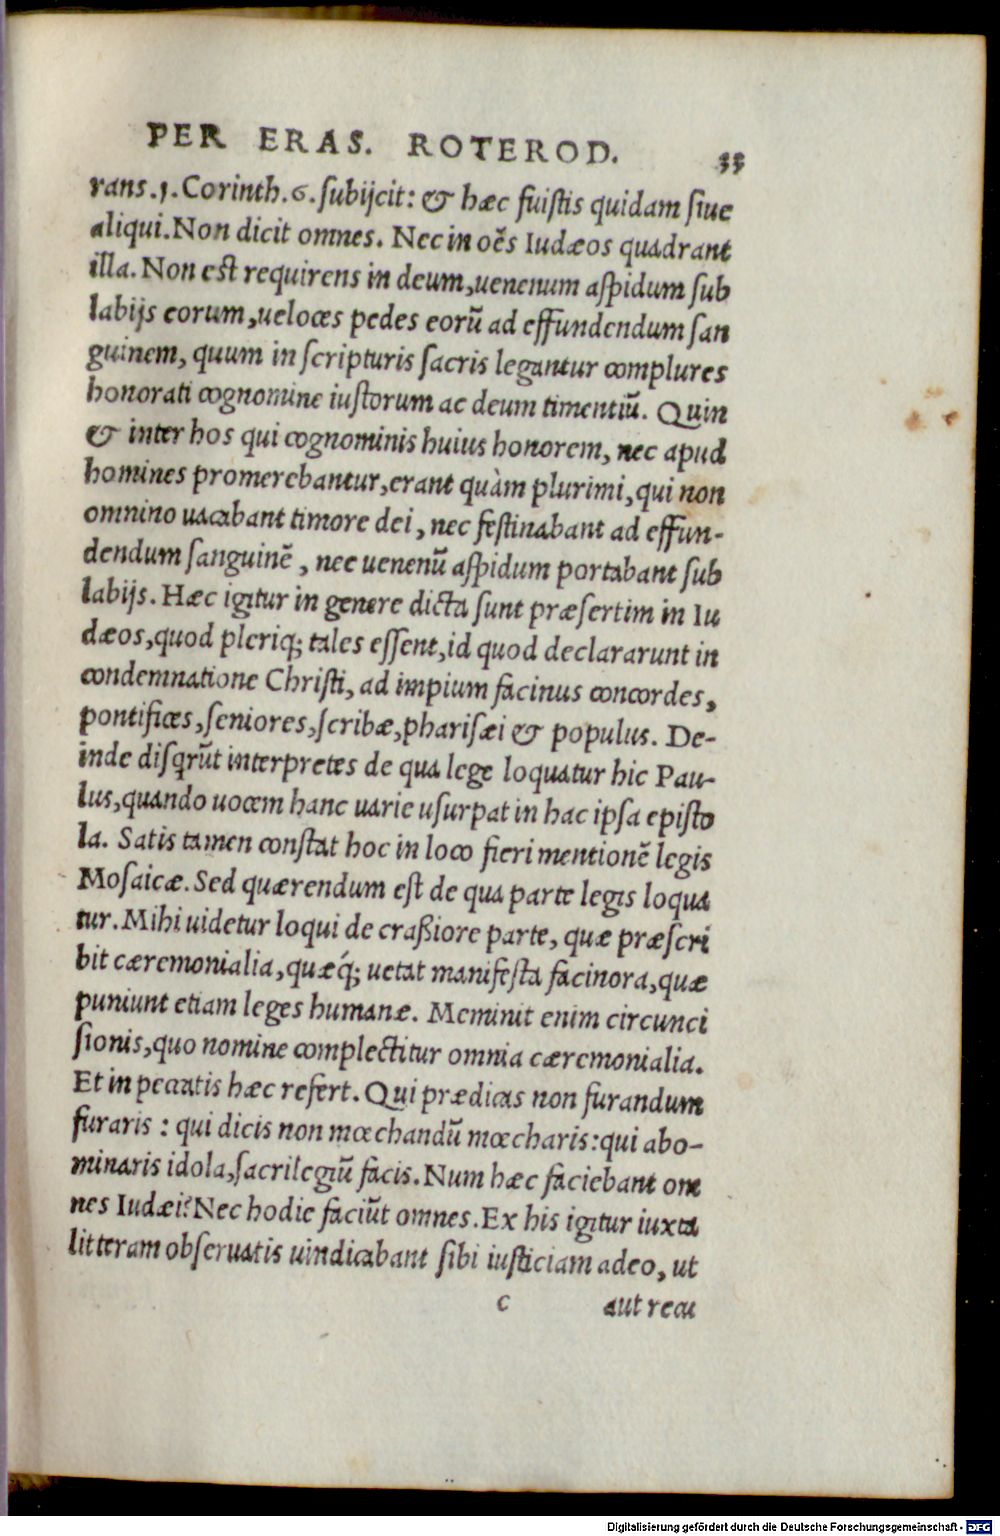 PER ERAS. ROTEROD. 33
rans.1.Corinth.6.subijcit: & hæc fuistis quidam siue
aliqui.Non dicit omnes. Nec in oēs Iudæos quadrant
illa. Non est requirens in deum,uenenum aspidum sub
labijs eorum,ueloces pedes eorū ad effundendum san
guinem, quum in scripturis sacris legantur complures
honorati cognomine iustorum ac deum timentiū. Quin
& inter hos qui cognominis huius honorem, nec apud
homines promerebantur,erant quàm plurimi,qui non
omnino uacabant timore dei, nec festinabant ad effun-
dendum sanguinē, nec uenenū aspidum portabant sub
labijs. Hæc igitur in genere dicta sunt præsertim in Iu
dæos,quod pleriq; tales essent,id quod declararunt in
condemnatione Christi, ad impium facinus concordes,
pontifices,seniores,scribæ,pharisæi & populus. De-
inde disq̃rūt interpretes de qua lege loquatur hic Pau-
lus,quando uocem hanc uarie usurpat in hac ipsa episto
la. Satis tamen constat hoc in loco fieri mentionē legis
Mosaicæ. Sed quærendum est de qua parte legis loqua
tur. Mihi uidetur loqui de craßiore parte, quæ præscri
bit cæremonialia,quæq́; uetat manifesta facinora,quæ
puniunt etiam leges humanæ. Meminit enim circunci
sionis,quo nomine complectitur omnia cæremonialia.
Et in peccatis hæc refert. Qui prædicas non furandum
furaris : qui dicis non mœchandū mœcharis:qui abo-
minaris idola,sacrilegiū facis. Num hæc faciebant om
nes Iudæi? Nec hodie faciūt omnes. Ex his igitur iuxta
litteram obseruatis uindicabant sibi iusticiam adeo, ut
c aut recu
Digitalisierung gefördert durch die Deutsche Forschungsgemeinschaft - DFG